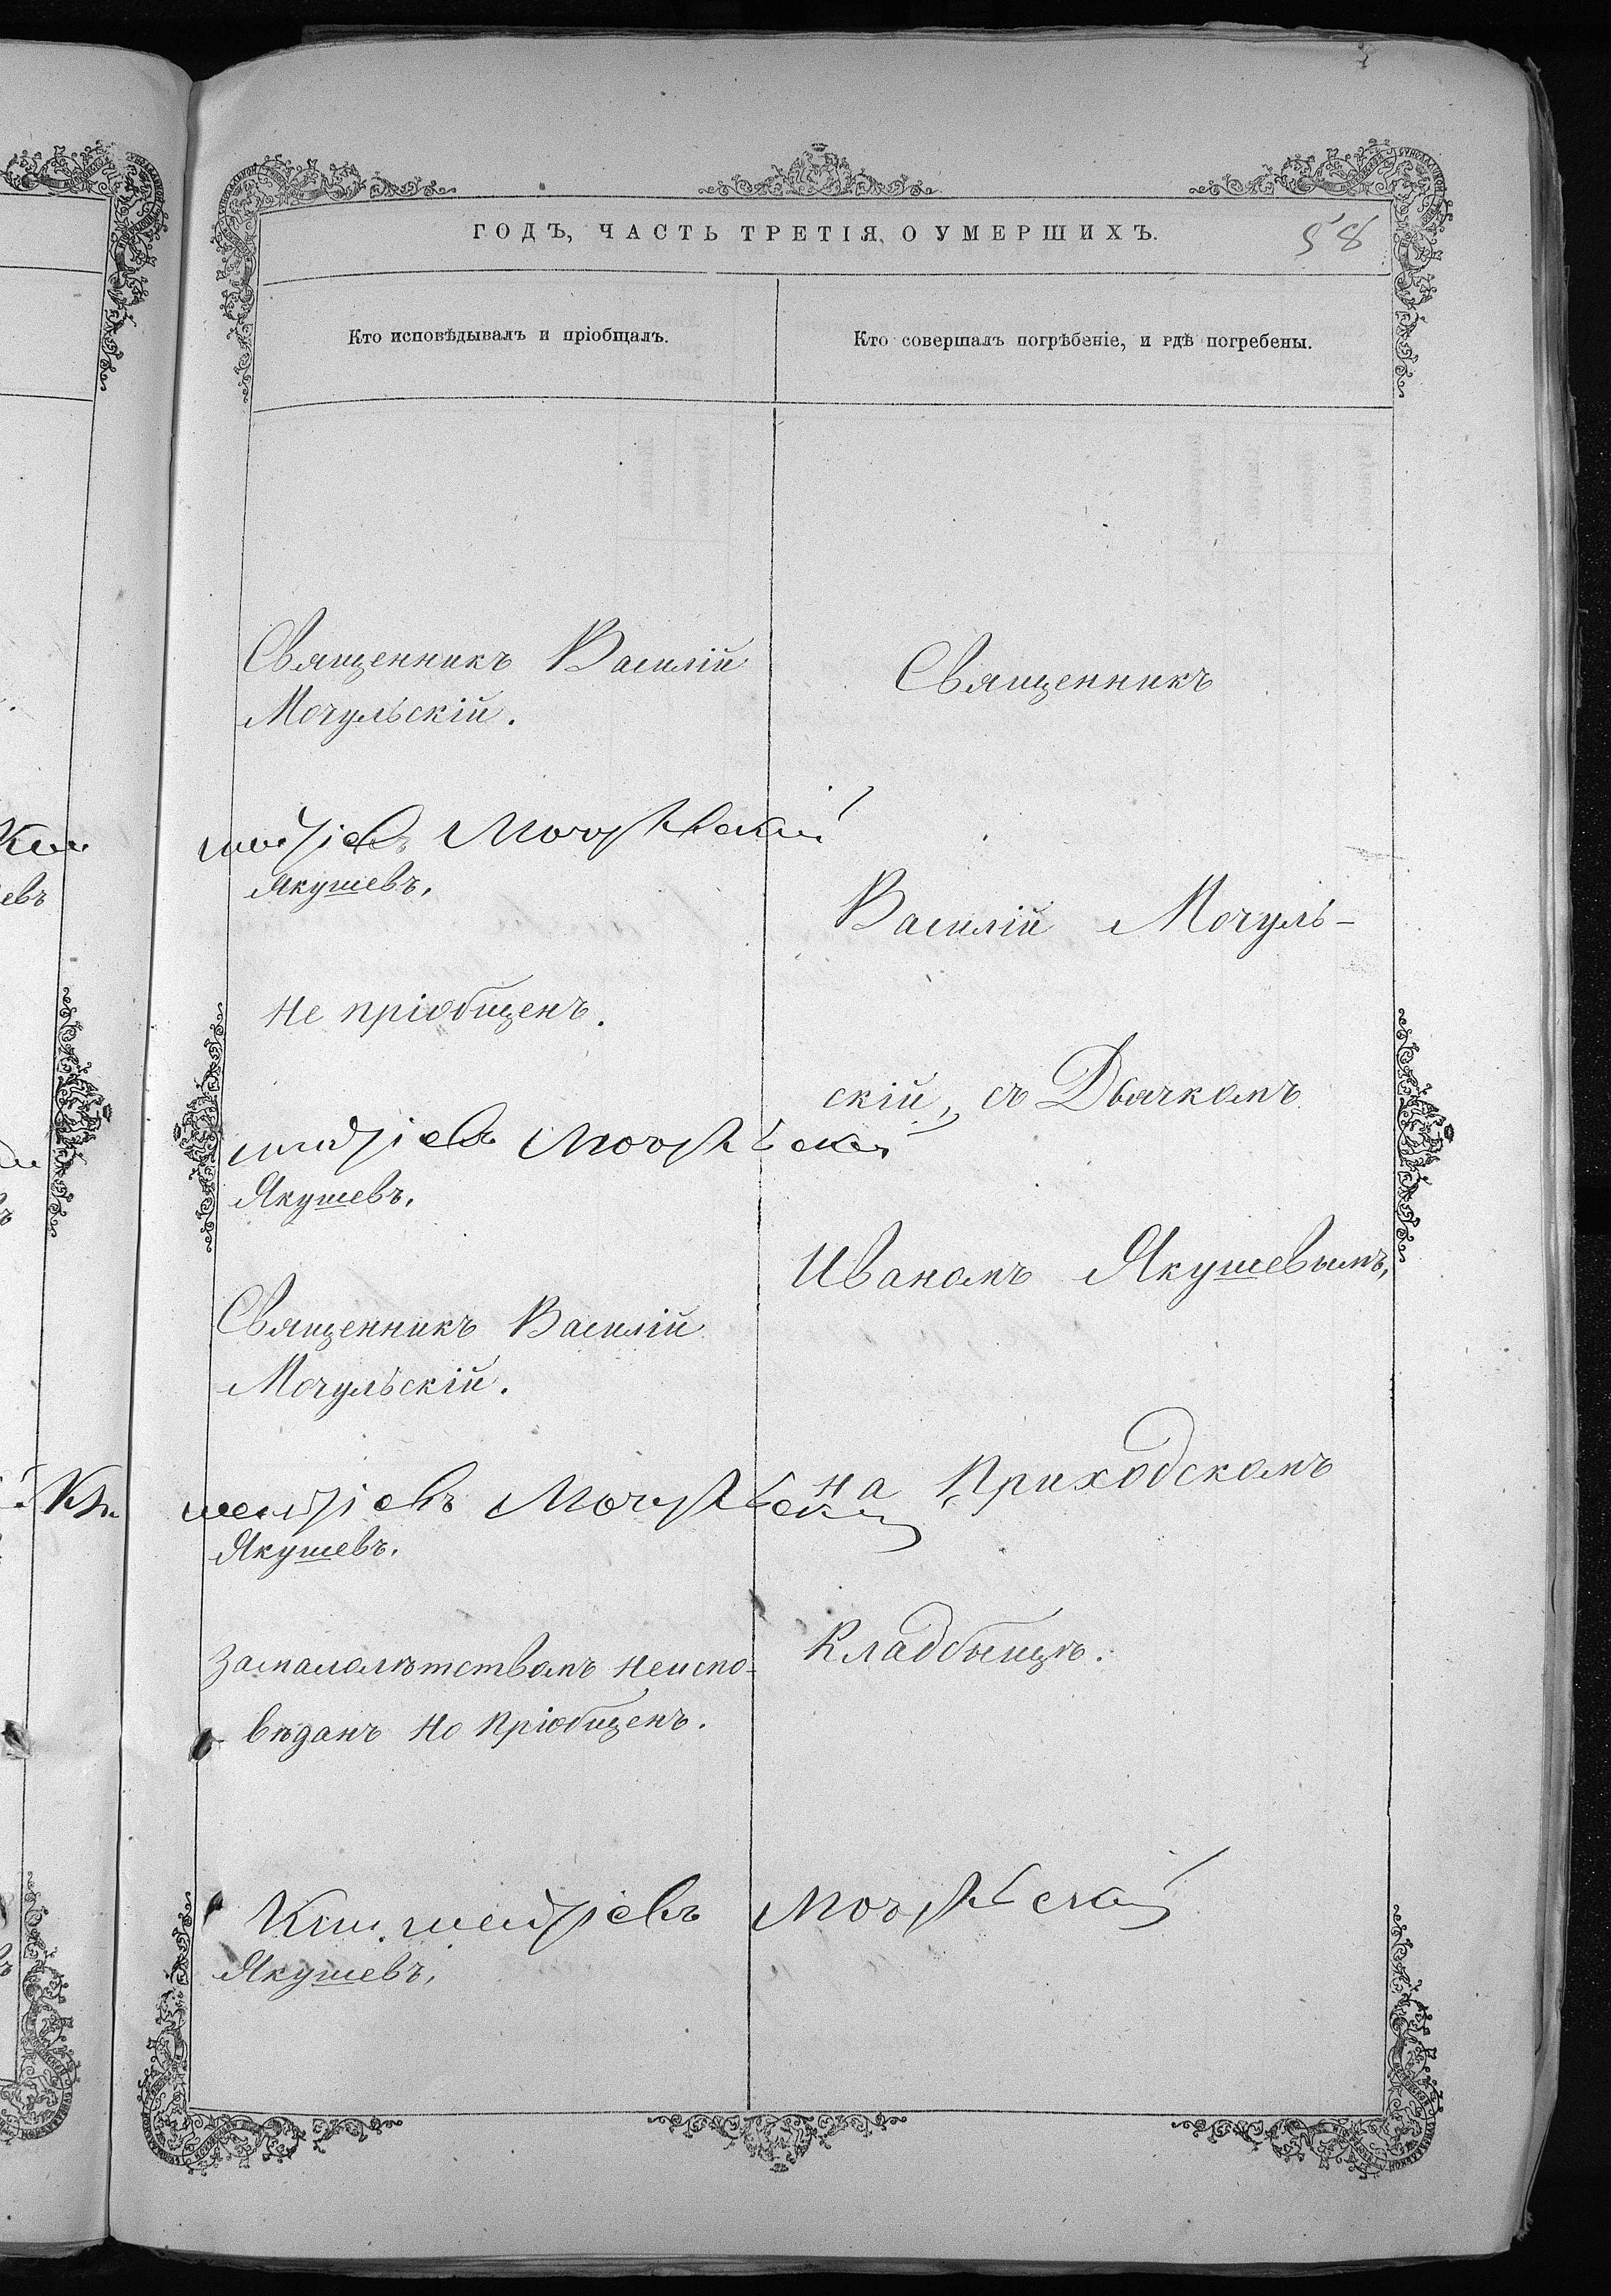 ГОДЪ, ЧАСТЬ ТРЕТІЯ, О УМЕРШИХЪ.
58
Кто исповѣдывалъ и пріобщалъ.
Кто совершалъ погрѣбеніе, и гдѣ погребены.
Священникъ Василій
Мочульскій.
Мочульскій
Якушевъ,
Не пріобщенъ.
Мочульскій
Якушевъ,
Священникъ Василій
Мочульскій.
Мочульскій
Якушевъ,
За малолѣтствомъ неиспо-
вѣданъ но пріобщенъ.
Мочульскій
Якушевъ,
Священникъ
Василій Мочуль-
скій, съ Дьячкомъ
Иваномъ Якушевымъ,
на Приходскомъ
Кладбыщѣ.